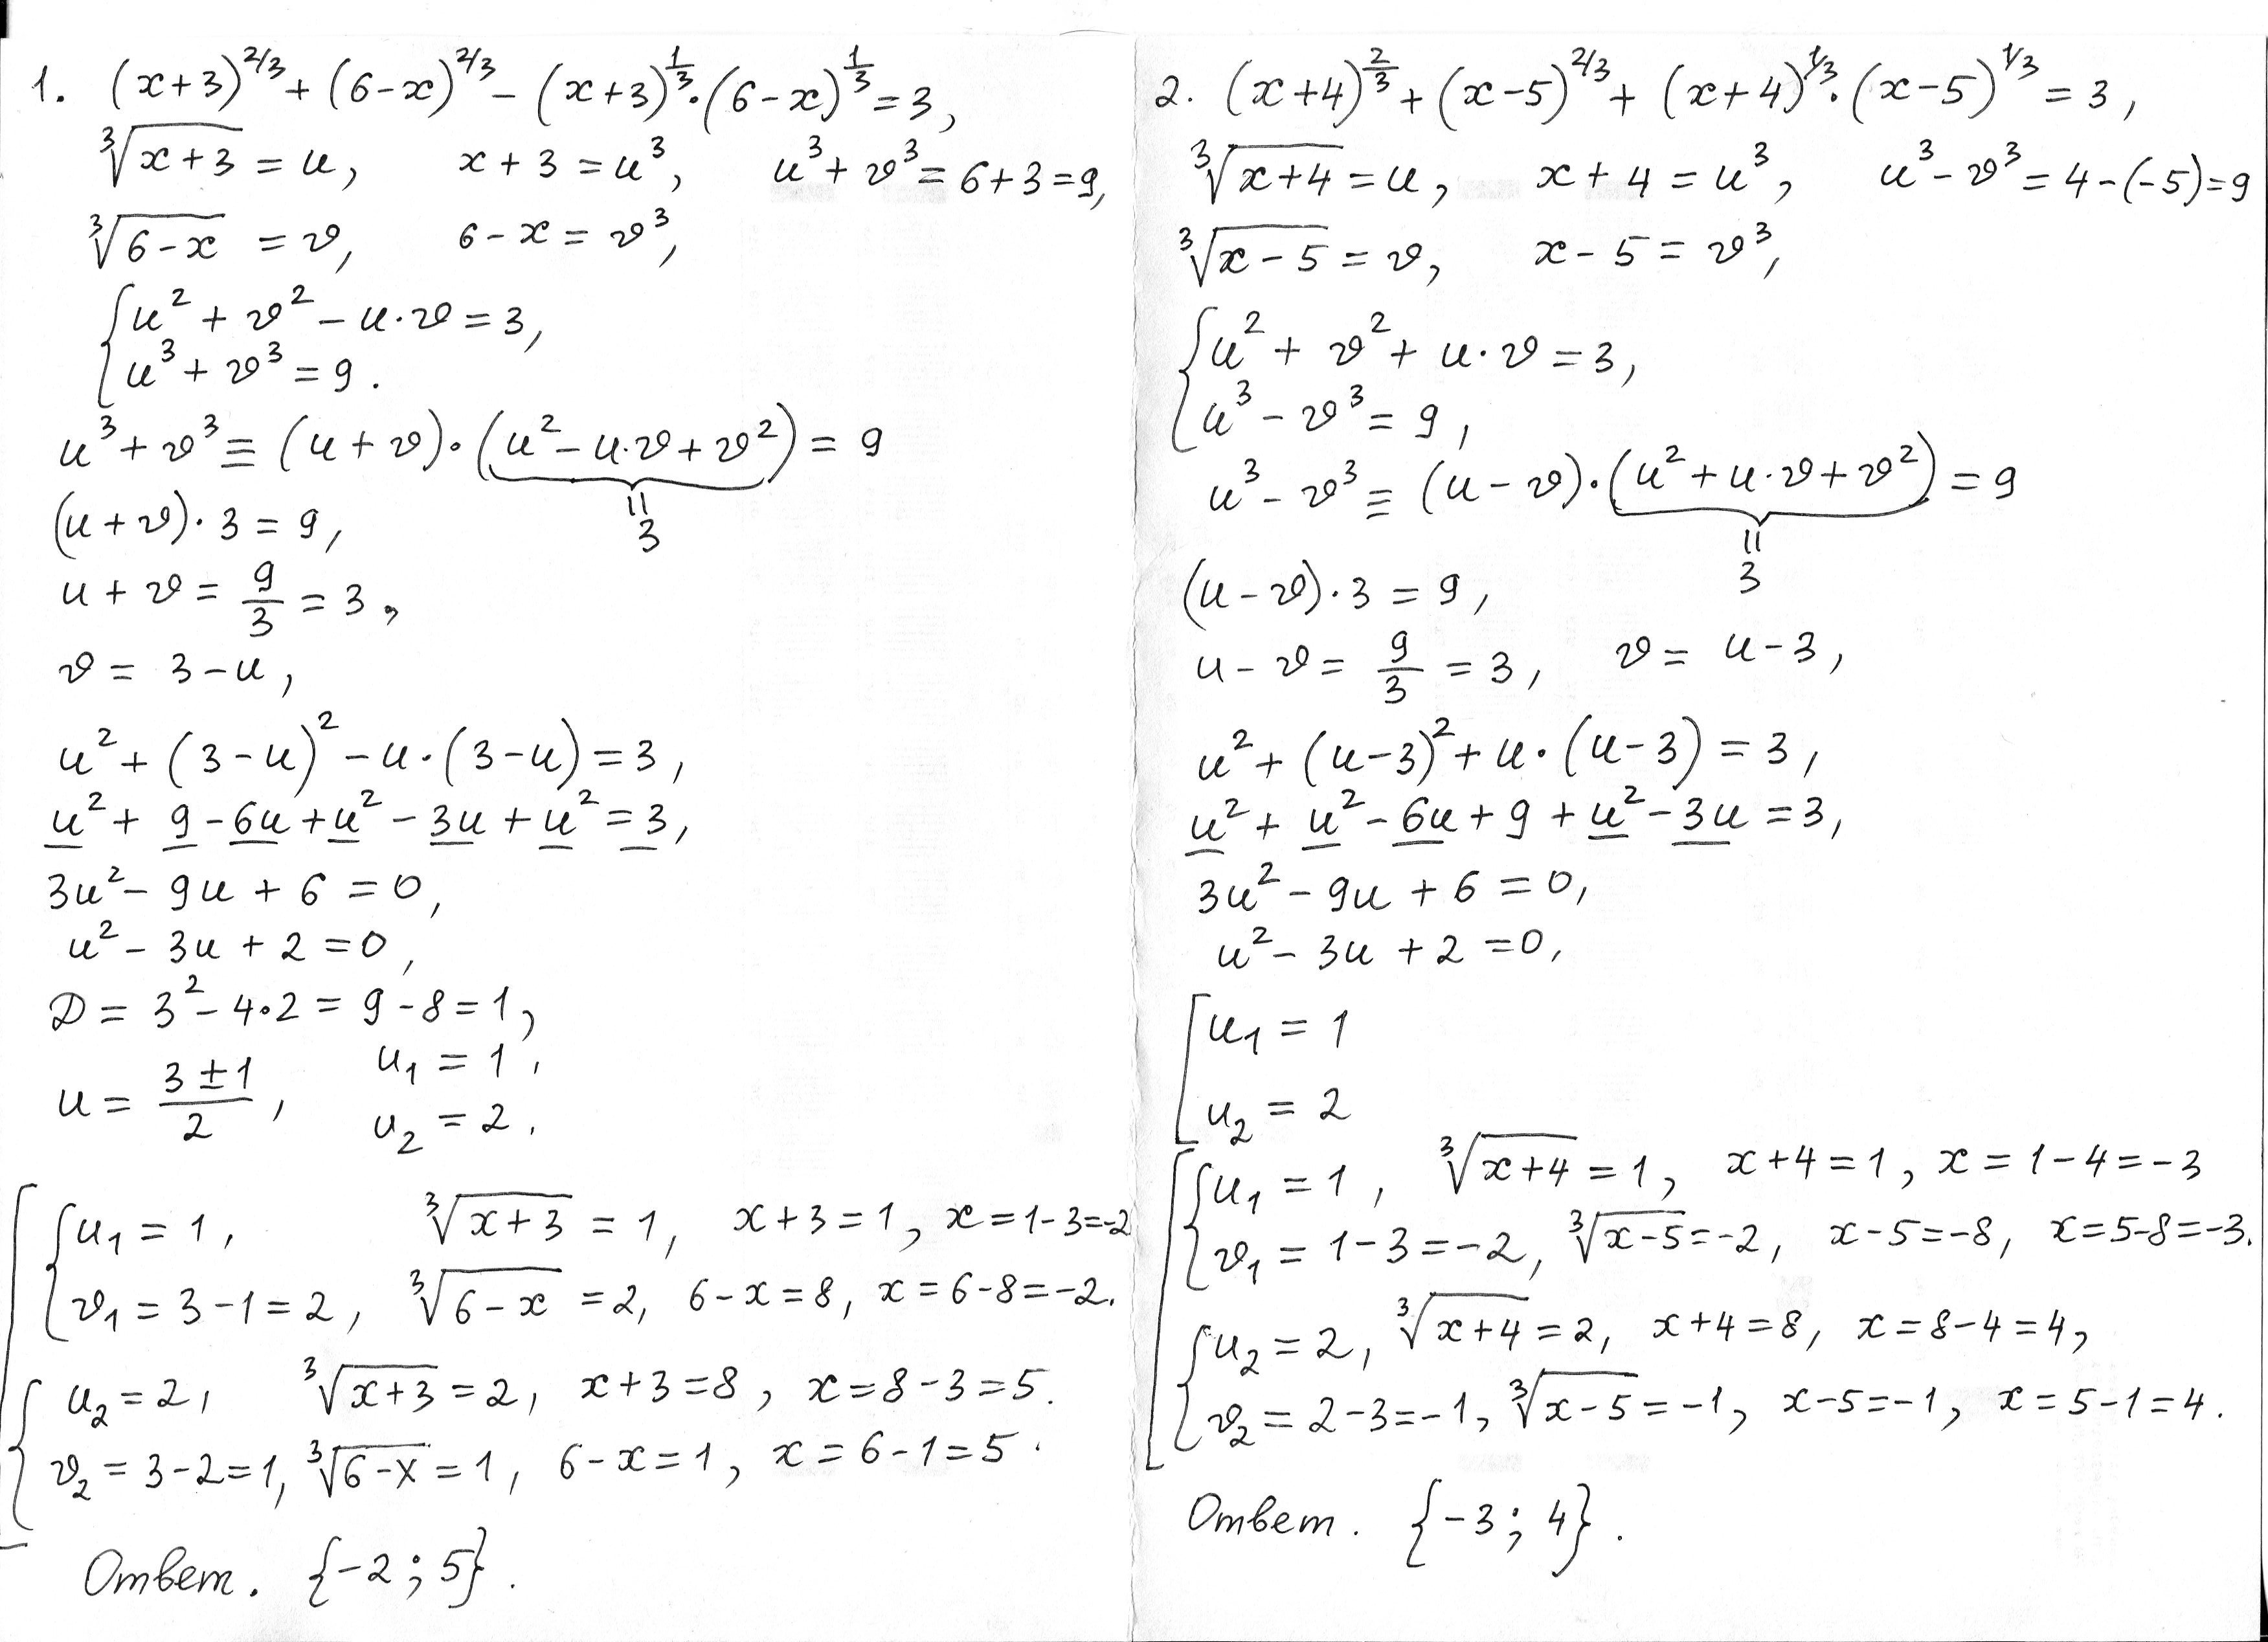 1. (x+3)^{2/3} + (6-x)^{2/3} - (x+3)^{1/3}·(6-x)^{1/3} = 3,
∛(x+3) = u, x+3 = u³, u³+v³ = 6+3 = 9,
∛(6-x) = v, 6-x = v³,
{ u²+v²-u·v = 3,
{ u³+v³ = 9.
u³+v³ ≡ (u+v)·(u²-u·v+v²) = 9
(u+v)·3 = 9, || 3
u+v = 9/3 = 3,
v = 3-u,
u²+(3-u)²-u·(3-u) = 3,
u²+9-6u+u²-3u+u² = 3,
3u²-9u+6 = 0,
u²-3u+2 = 0,
D = 3²-4·2 = 9-8 = 1,
u = (3±1)/2, u₁ = 1.
u₂ = 2.
[ { u₁ = 1, ∛(x+3) = 1, x+3 = 1, x = 1-3 = -2
{ v₁ = 3-1 = 2, ∛(6-x) = 2, 6-x = 8, x = 6-8 = -2.
{ u₂ = 2, ∛(x+3) = 2, x+3 = 8, x = 8-3 = 5.
{ v₂ = 3-2 = 1, ∛(6-x) = 1, 6-x = 1, x = 6-1 = 5.
Ответ. {-2; 5}.
2. (x+4)^{2/3} + (x-5)^{2/3} + (x+4)^{1/3}·(x-5)^{1/3} = 3,
∛(x+4) = u, x+4 = u³, u³-v³ = 4-(-5) = 9
∛(x-5) = v, x-5 = v³,
{ u²+v²+u·v = 3,
{ u³-v³ = 9,
u³-v³ ≡ (u-v)·(u²+u·v+v²) = 9
|| 3
(u-v)·3 = 9,
u-v = 9/3 = 3, v = u-3,
u²+(u-3)²+u·(u-3) = 3,
u²+u²-6u+9+u²-3u = 3,
3u²-9u+6 = 0,
u²-3u+2 = 0,
[ u₁ = 1
[ u₂ = 2
[ { u₁ = 1, ∛(x+4) = 1, x+4 = 1, x = 1-4 = -3
{ v₁ = 1-3 = -2, ∛(x-5) = -2, x-5 = -8, x = 5-8 = -3.
{ u₂ = 2, ∛(x+4) = 2, x+4 = 8, x = 8-4 = 4,
{ v₂ = 2-3 = -1, ∛(x-5) = -1, x-5 = -1, x = 5-1 = 4.
Ответ. {-3; 4}.